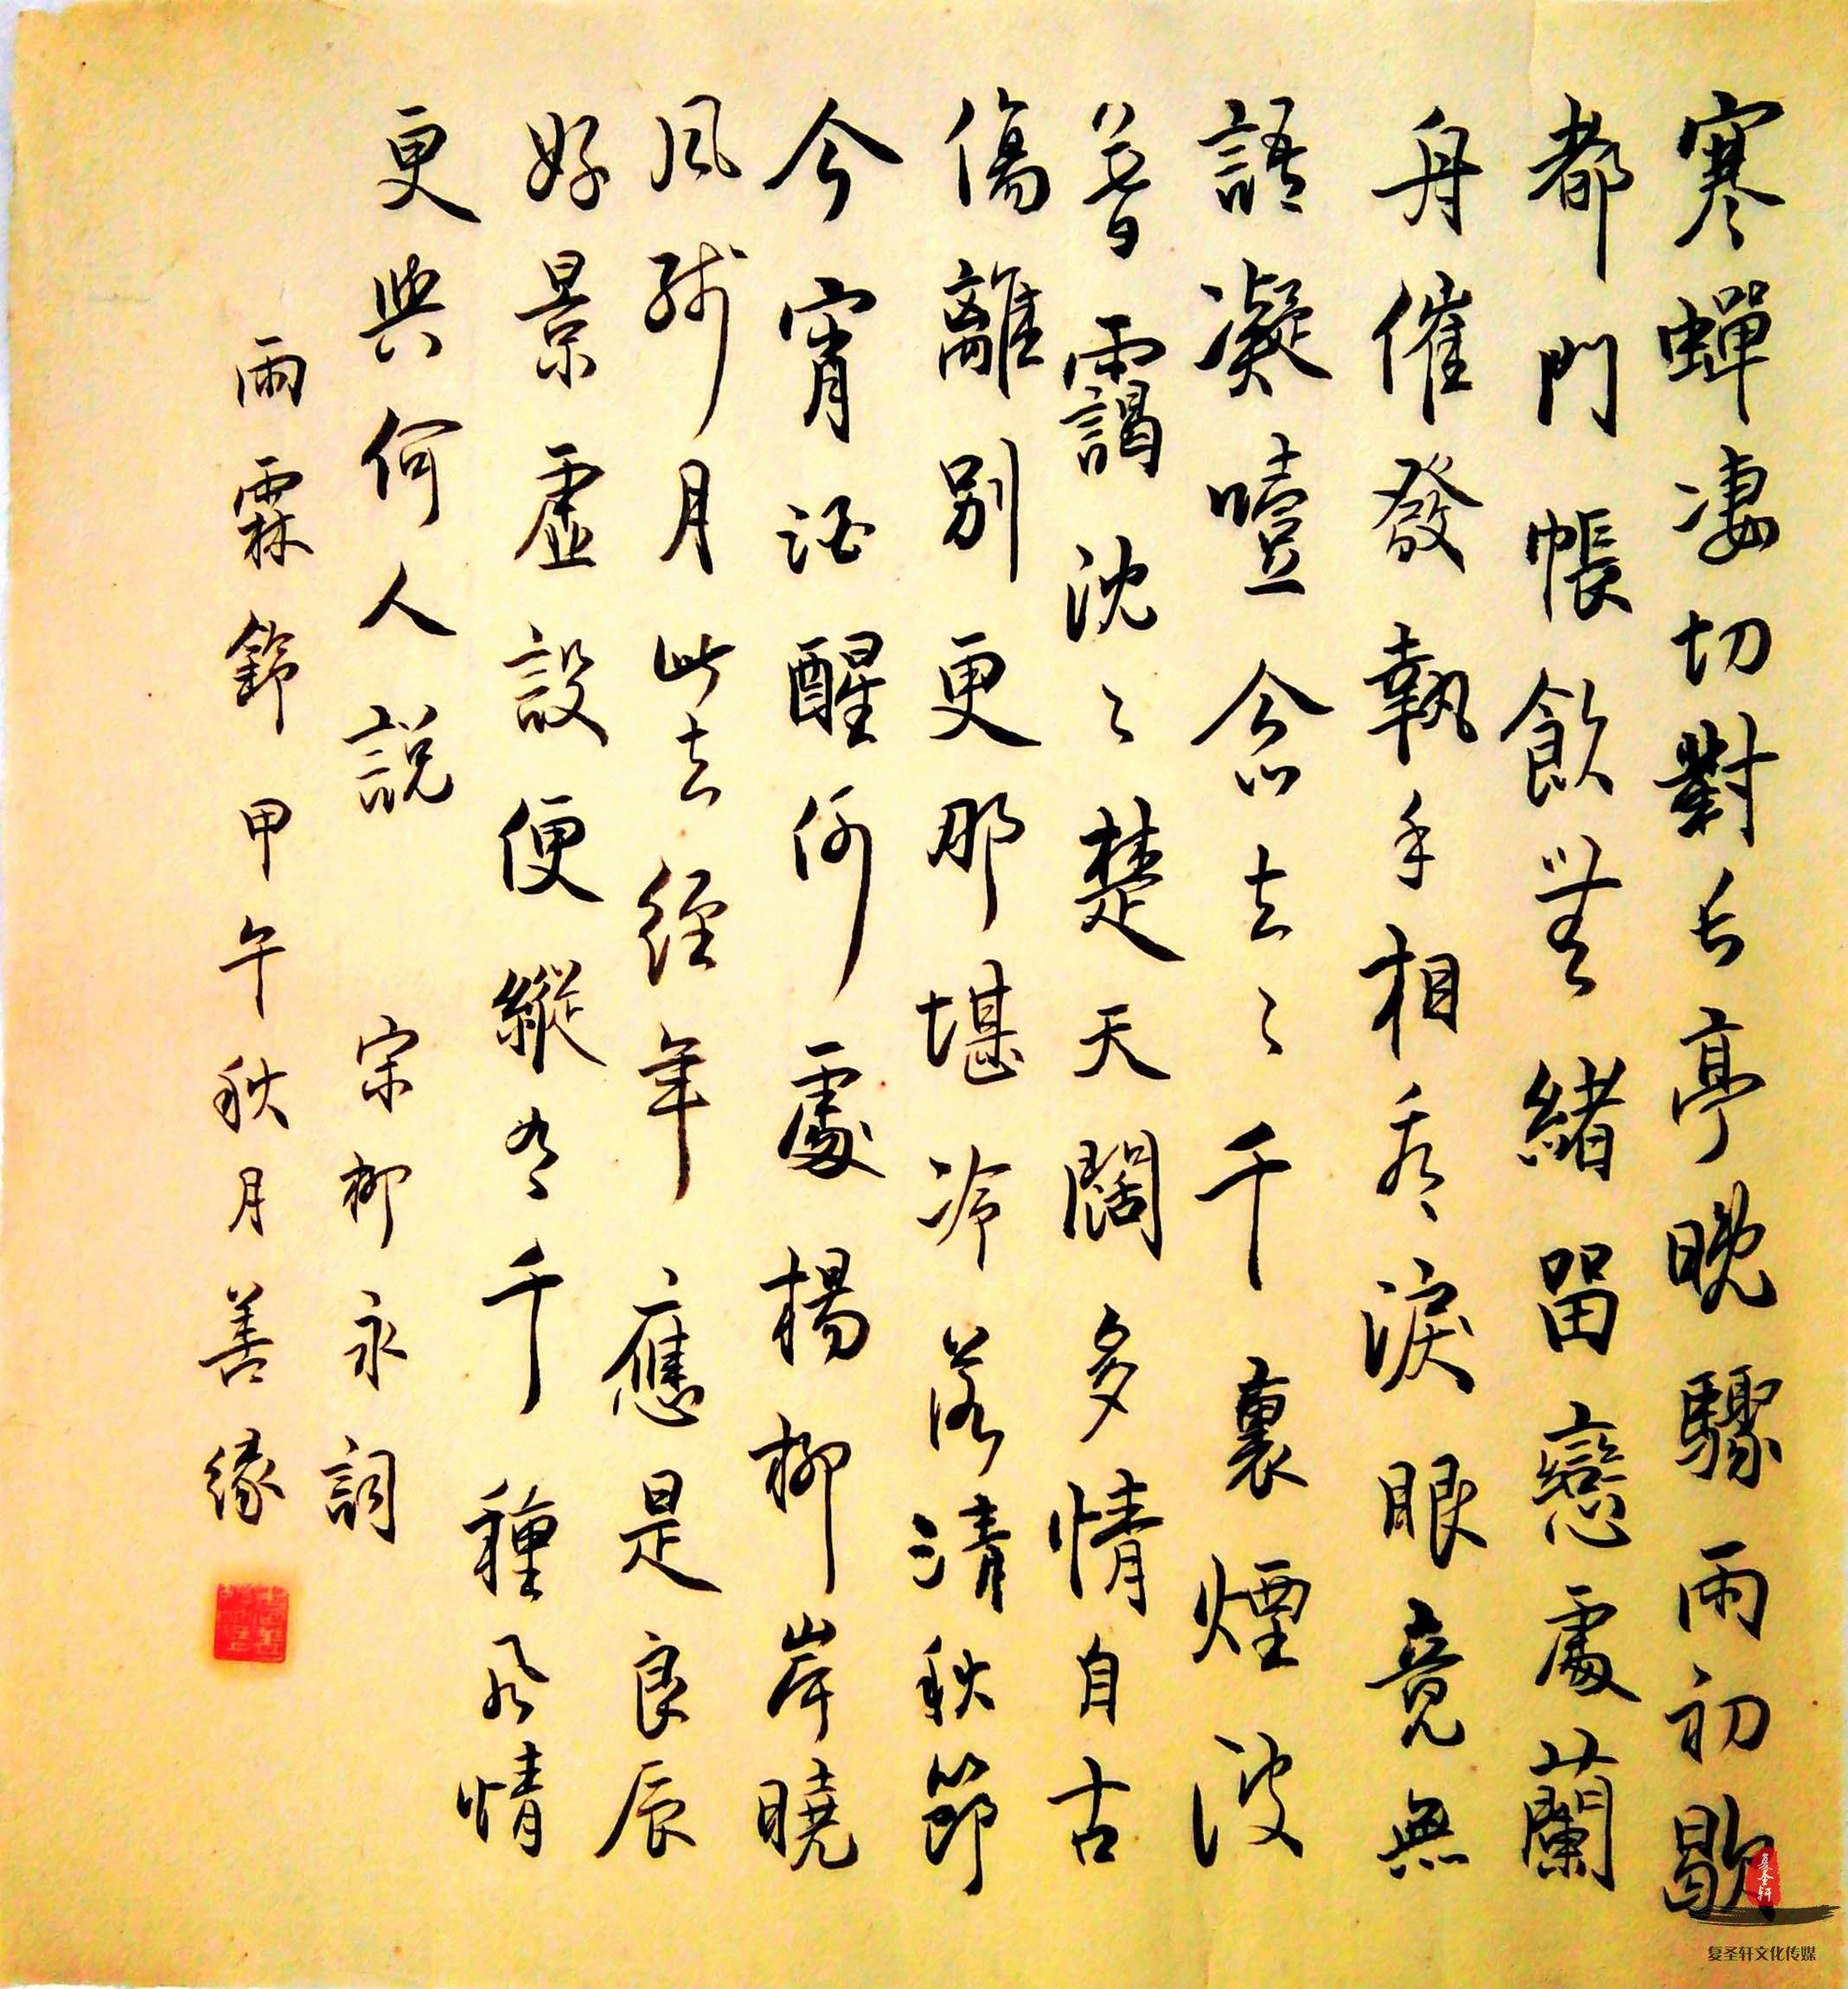 寒蟬凄切對長亭晚驟雨初歇
都門帳飲無緒留戀處蘭
舟催發執手相看淚眼竟無
語凝噎念去々千裏煙波
暮靄沈々楚天闊多情自古
傷離別更那堪冷落清秋節
今宵酒醒何處楊柳岸曉
風殘月此去經年應是良辰
好景虛設便縱有千種風情
更與何人說 宋柳永詞
雨霖鈴甲午秋月善緣
复圣轩
复圣轩文化传媒